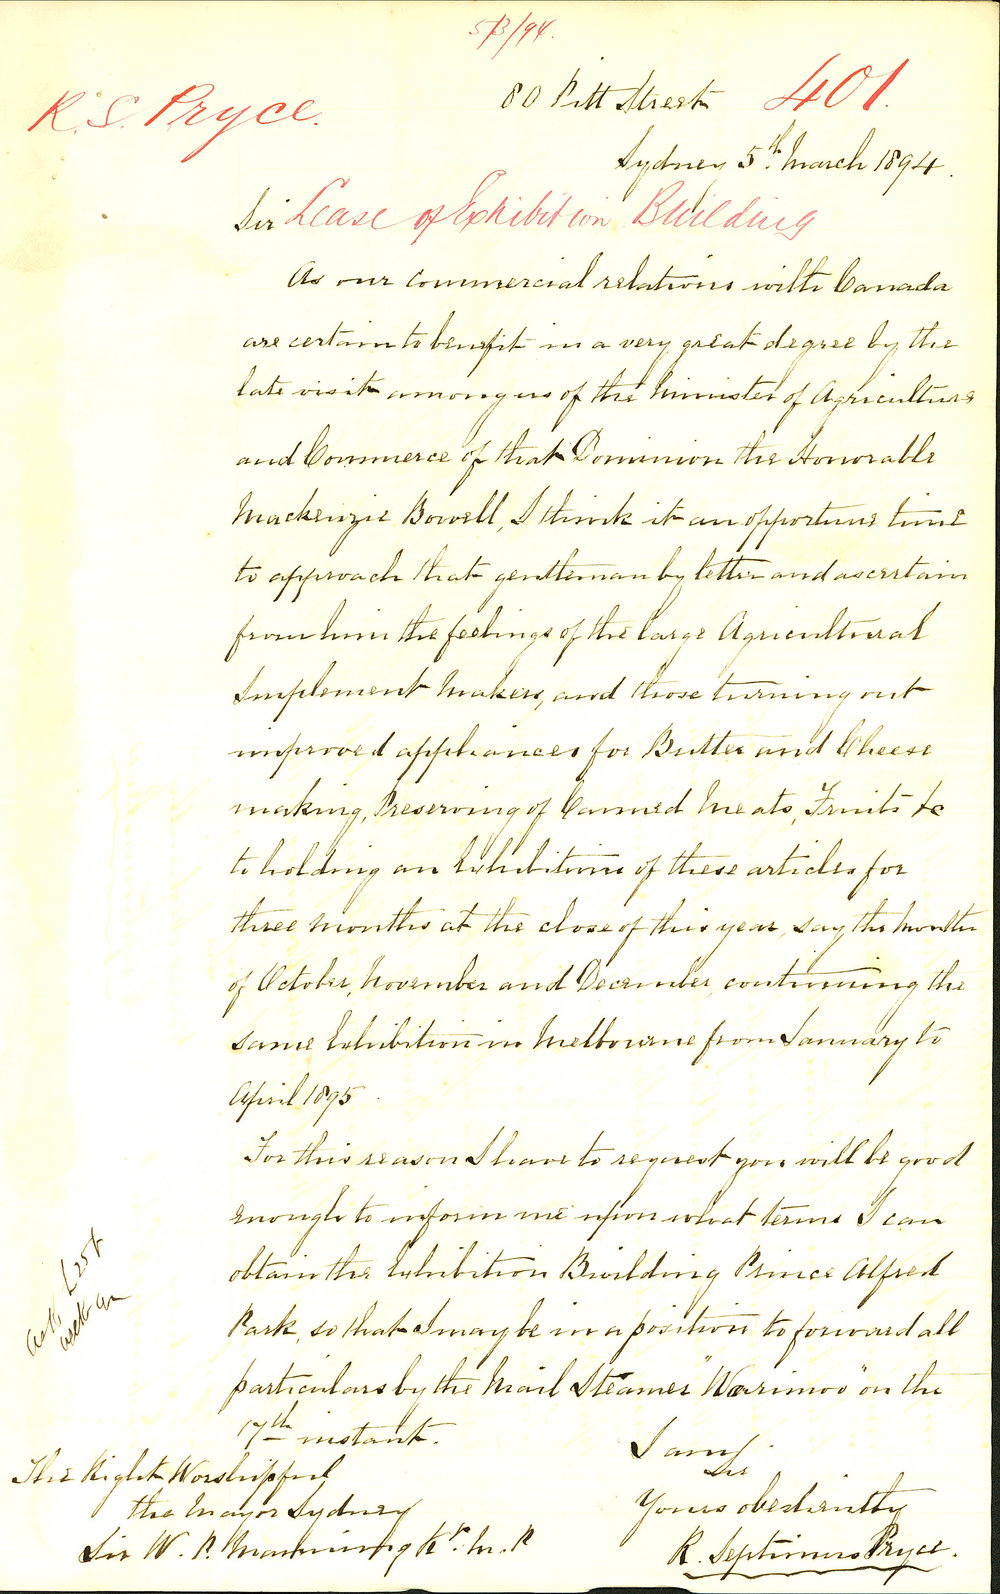 5/3/94.
80 Pitt Street 401.
R. S. Pryce.
Sydney 5th March 1894.
Sir Lease of Exhibition Building
As our commercial relations with Canada
are certain to benefit in a very great degree by the
late visit among us of the Minister of Agriculture
and Commerce of that Dominion the Honorable
Mackenzie Bowell, I think it an opportune time
to approach that gentleman by letter and ascertain
from him the feelings of the large Agricultural
Implement Makers, and those turning out
improved appliances for Butter and Cheese
making, Preserving of Canned Meats, Fruits &c
to holding an Exhibition of these articles for
three months at the close of this year, say the months
of October, November and December, continuing the
same Exhibition in Melbourne from January to
April 1895.
For this reason I have to request you will be good
enough to inform me upon what terms I can
obtain the Exhibition Building Prince Alfred
Park, so that I may be in a position to forward all
particulars by the Mail Steamer "Warimoo" on the
17th instant.
I am
Sir
Yours obediently
R. Septimus Pryce.
The Right Worshipful
the Mayor Sydney
Sir W. P. Manning Kt. M. P
Ask £25